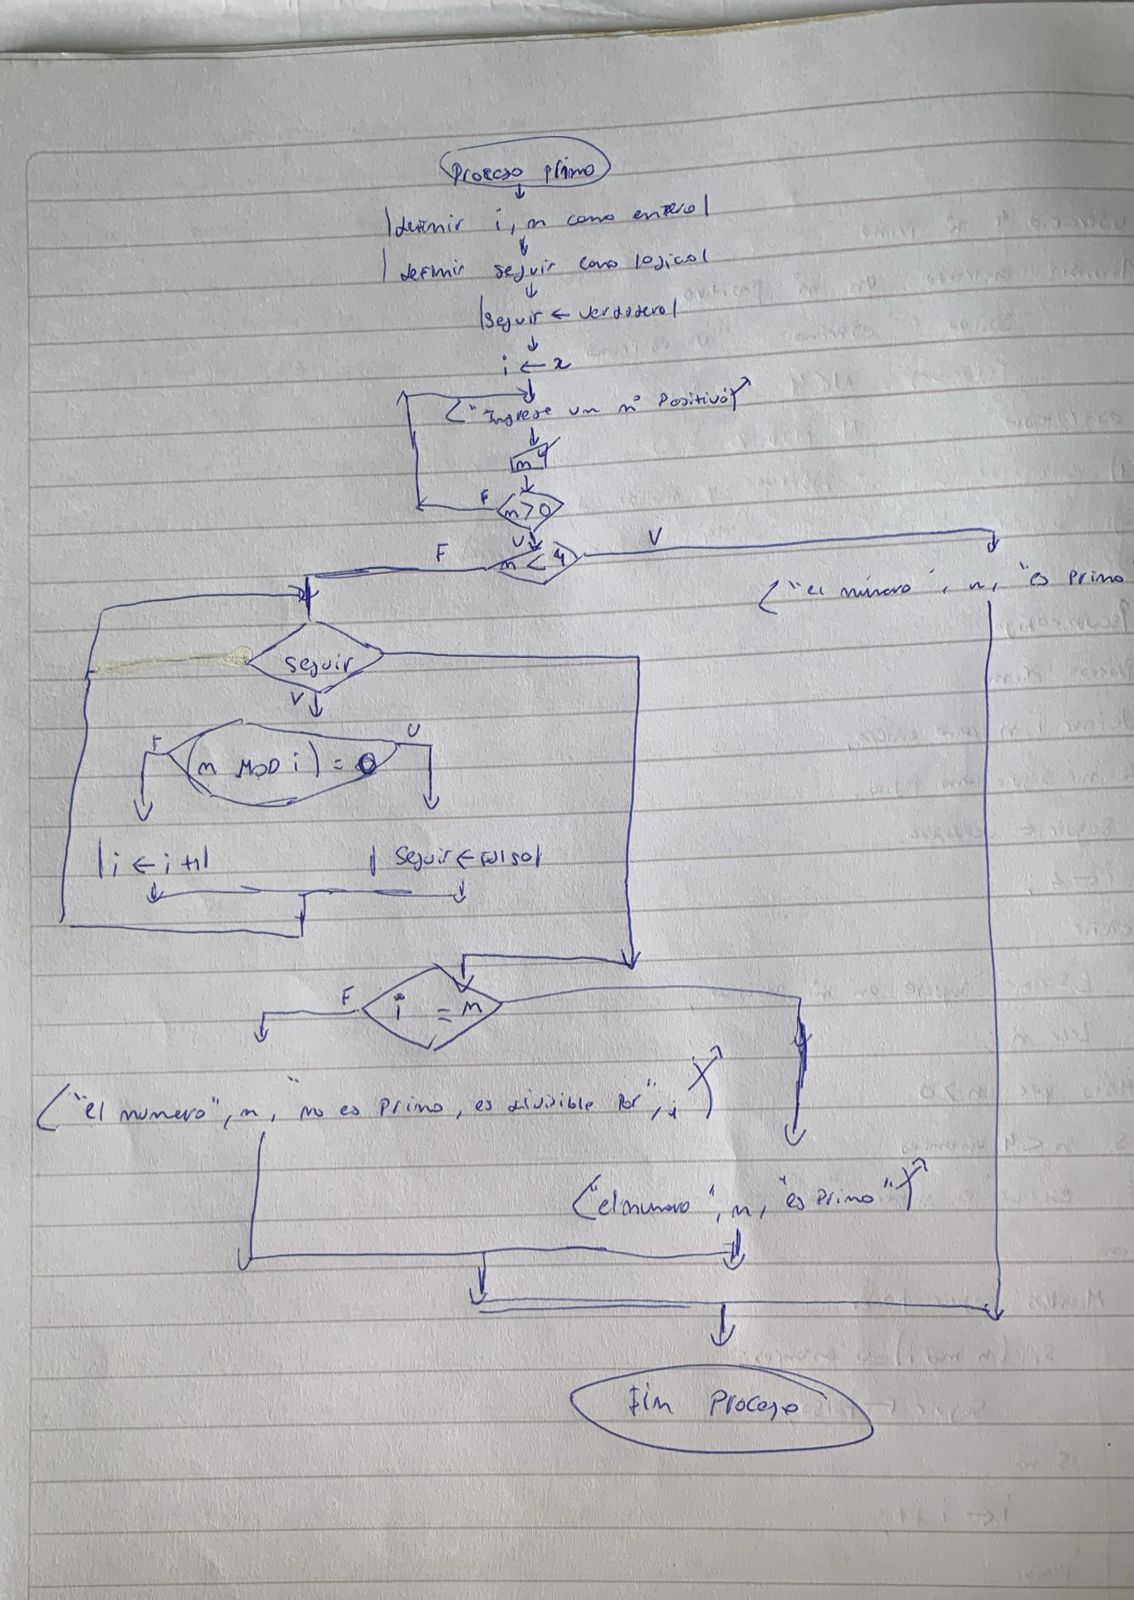 Proceso primo
definir i, n como entero
definir seguir como logico
seguir ← verdadero
i ← 2
"Ingrese un nº Positivo"
n
F n > 0
V
F n < 4 V
"el número", n, "es primo
seguir
V
F (n MOD i) = 0 V
i ← i + 1 seguir ← falso
F i = n
"el numero", n, "no es Primo, es divisible por", i
"el numero", n, "es Primo"
Fin Proceso